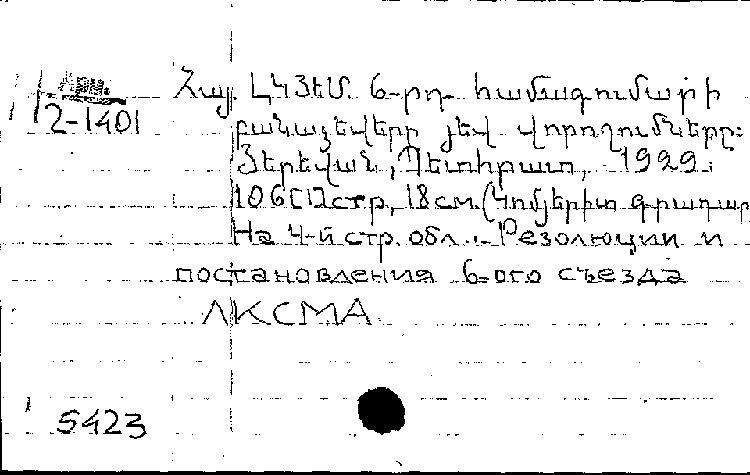 Арм.
2-1401
Հայ. ԼԿՅԵՄ 6-րդ համագումարի
բանաձեվերը յեվ վորոշումները:
Յերեվան, Պետհրատ, 1929.
106[1]стр., 18см. (Կոմյերիտ գրադար
На 4-й стр. обл.: Резолюции и
постановления 6-ого съезда
ЛКСМА
5423